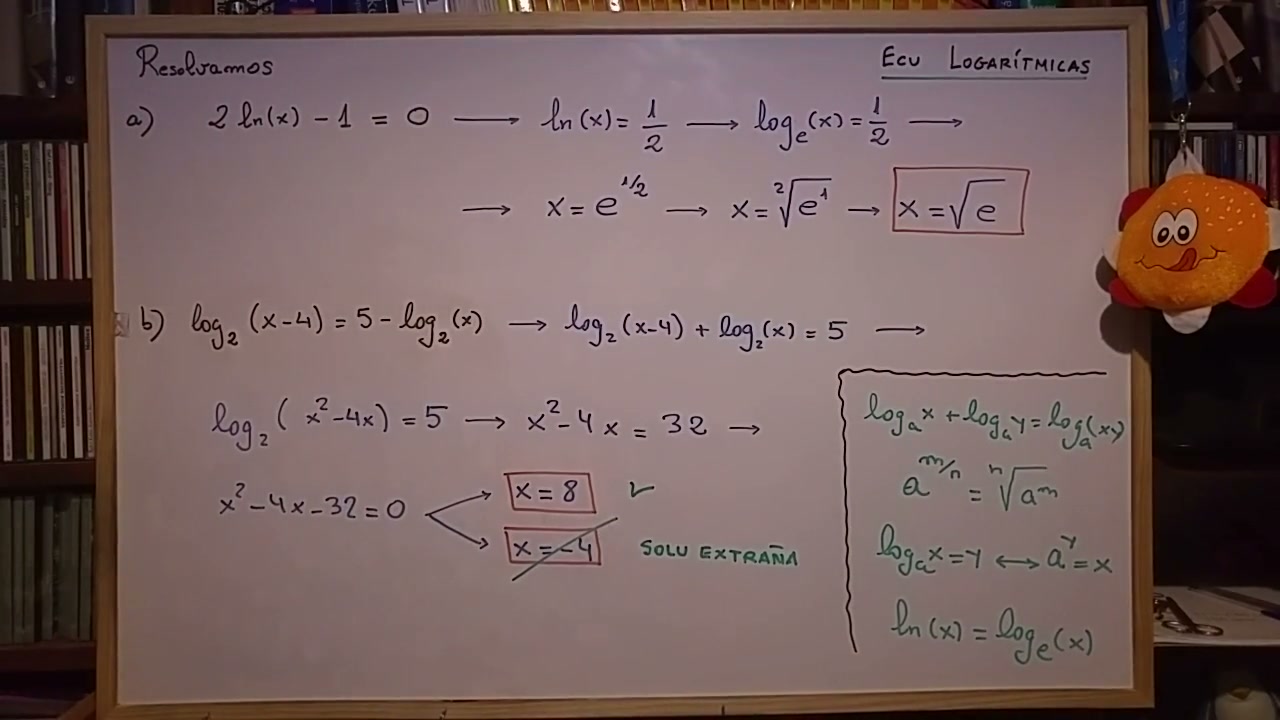 Resolvamos
ECU LOGARÍTMICAS
a) 2 ln(x) - 1 = 0 → ln(x) = 1/2 → log_e(x) = 1/2 →
→ x = e^{1/2} → x = ²√e¹ → x = √e
b) log₂(x-4) = 5 - log₂(x) → log₂(x-4) + log₂(x) = 5 →
log₂(x²-4x) = 5 → x²-4x = 32 →
x²-4x-32=0
x = 8 ✓
x = -4 SOLU EXTRAÑA
log_a x + log_a y = log_a(xy)
a^{m/n} = ⁿ√a^m
log_a x = y ↔ a^y = x
ln(x) = log_e(x)